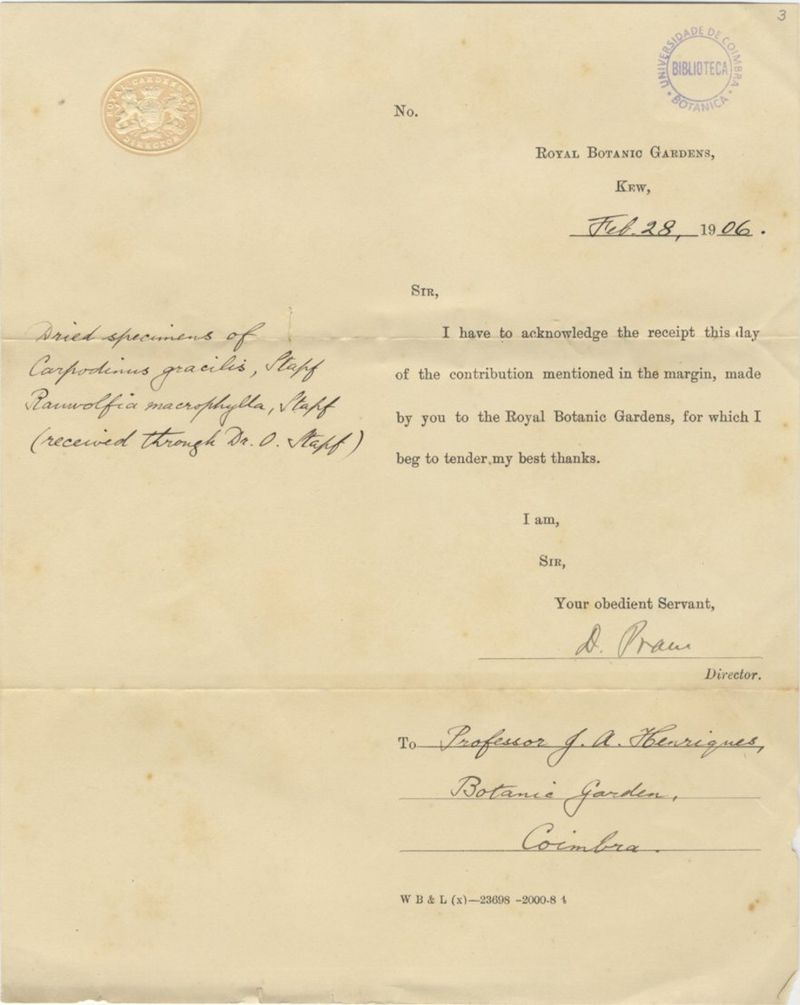 3
UNIVERSIDADE DE COIMBRA
BIBLIOTECA
BOTANICA
ROYAL GARDENS KEW
DIRECTOR
No.
ROYAL BOTANIC GARDENS,
KEW,
Feb. 28, 1906.
SIR,
I have to acknowledge the receipt this day
of the contribution mentioned in the margin, made
by you to the Royal Botanic Gardens, for which I
beg to tender my best thanks.
Dried specimens of
Carpodinus gracilis, Stapf
Rauwolfia macrophylla, Stapf
(received through Dr. O. Stapf)
I am,
SIR,
Your obedient Servant,
D. Prain
Director.
To Professor J. A. Henriques,
Botanic Garden,
Coimbra.
W B & L (x)—23698 -2000-8 4